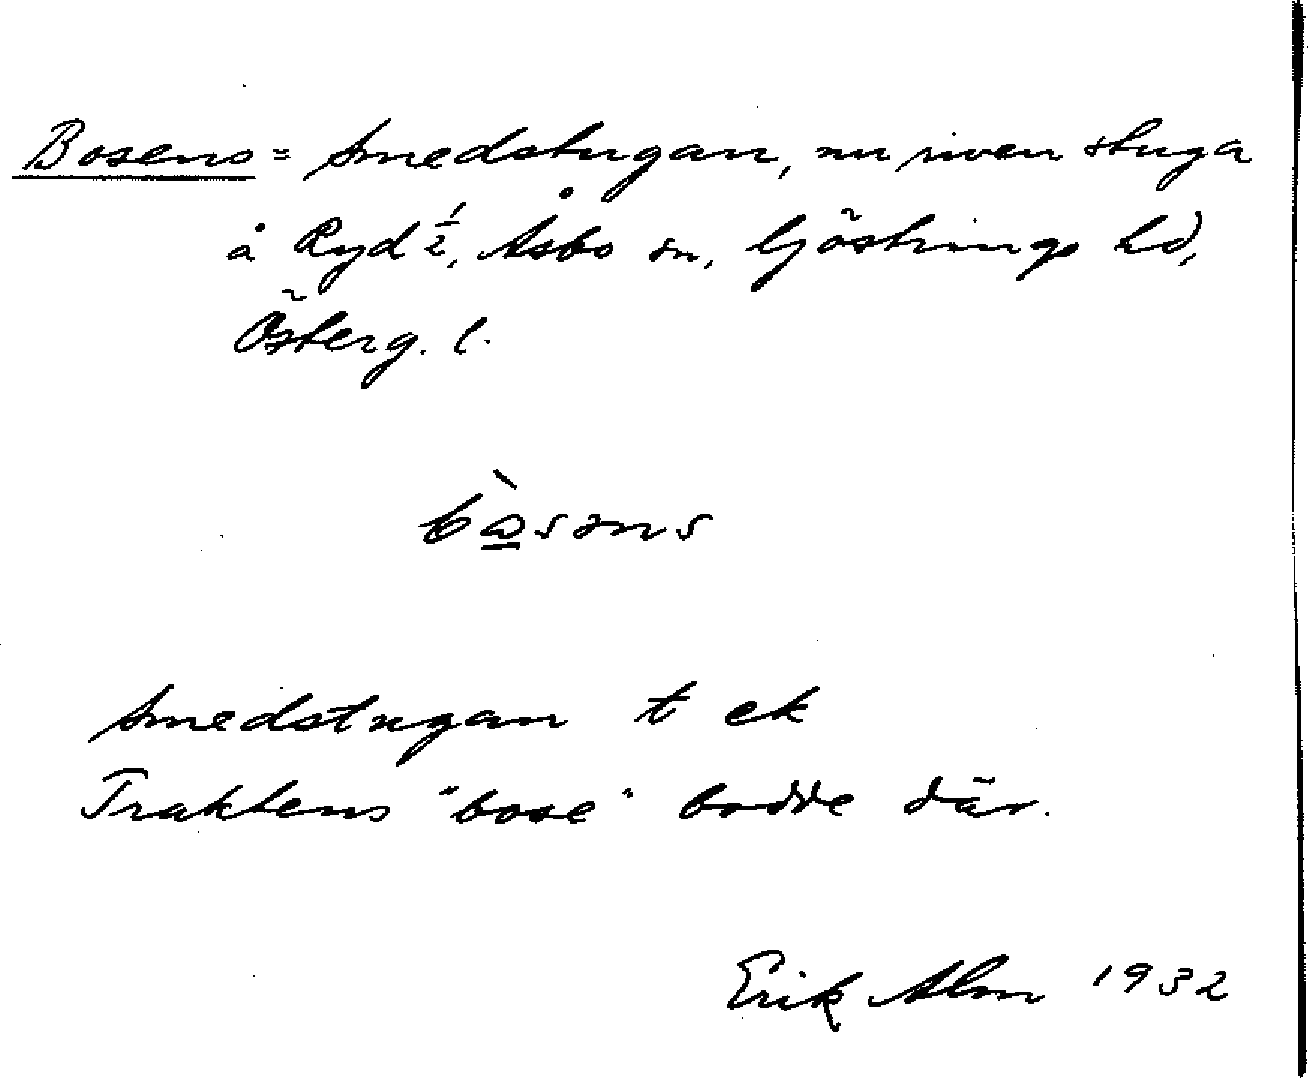 Bosens = Smedstugan, nu riven stuga
å Ryd ½, Åsbo sn, Göstrings hd,
Österg. l.
bò̲səns
Smedstugan t ek
Traktens "bose" bodde där.
Erik Alm 1932